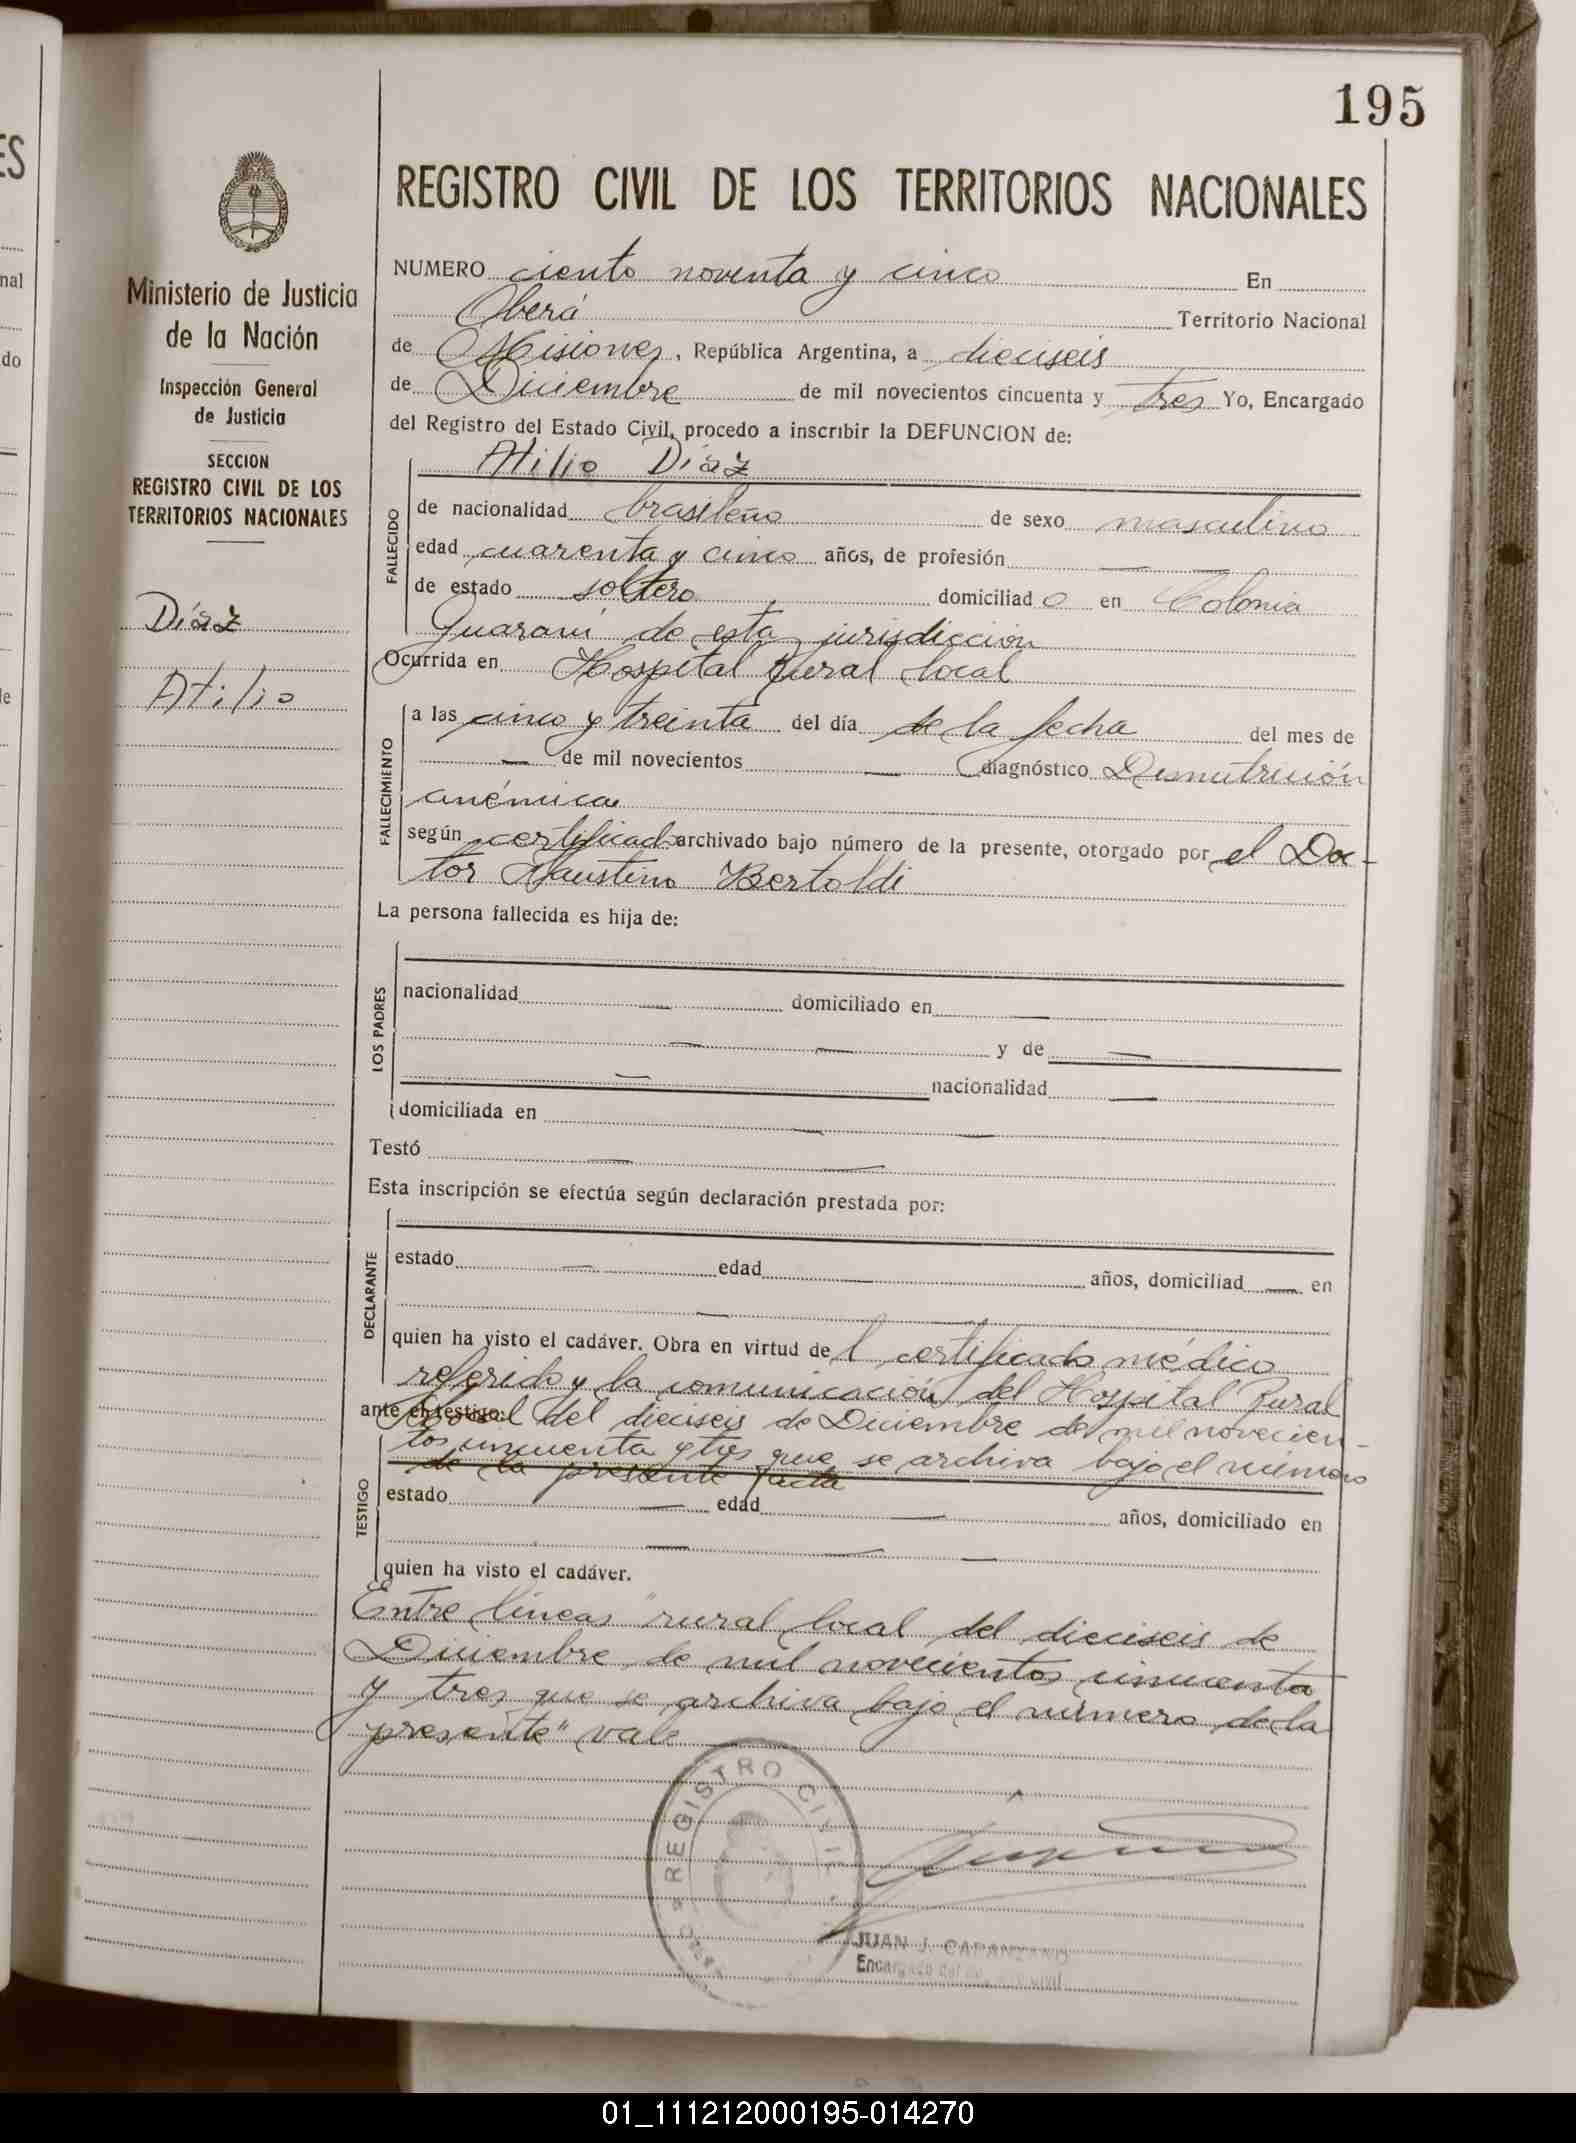 195
REGISTRO CIVIL DE LOS TERRITORIOS NACIONALES
Ministerio de Justicia
de la Nación
Inspección General
de Justicia
SECCION
REGISTRO CIVIL DE LOS
TERRITORIOS NACIONALES
Díaz
Atilio
NUMERO ciento noventa y cinco En
Oberá Territorio Nacional
de Misiones, República Argentina, a dieciseis
de Diciembre de mil novecientos cincuenta y tres Yo, Encargado
del Registro del Estado Civil, procedo a inscribir la DEFUNCION de:
Atilio Díaz
FALLECIDO
de nacionalidad brasileño de sexo masculino
edad cuarenta y cinco años, de profesión — —
de estado soltero domiciliado en Colonia
Guaraní de esta jurisdicción
Ocurrida en Hospital Rural local
FALLECIMIENTO
a las cinco y treinta del día de la fecha del mes de
— de mil novecientos — diagnóstico Desnutrición
anémica
según certificado archivado bajo número de la presente, otorgado por el Doc-
tor Faustino Bertoldi
La persona fallecida es hija de:
LOS PADRES
nacionalidad — domiciliado en —
— — y de —
— nacionalidad —
domiciliada en — —
Testó — —
Esta inscripción se efectúa según declaración prestada por:
DECLARANTE
estado — edad — años, domiciliad — en
—
quien ha visto el cadáver. Obra en virtud del certificado médico
referido y la comunicación del Hospital Rural
ante el testigo: local del dieciseis de Diciembre de mil novecien-
tos cincuenta y tres que se archiva bajo el número
de la presente acta
TESTIGO
estado — edad — años, domiciliado en
— — —
quien ha visto el cadáver.
Entre líneas "rural local del dieciseis de
Diciembre de mil novecientos cincuenta
y tres que se archiva bajo el número de la
presente" vale
REGISTRO CIVIL
JUAN J. CAPANZANO
Encargado del Registro Civil
01_111212000195-014270